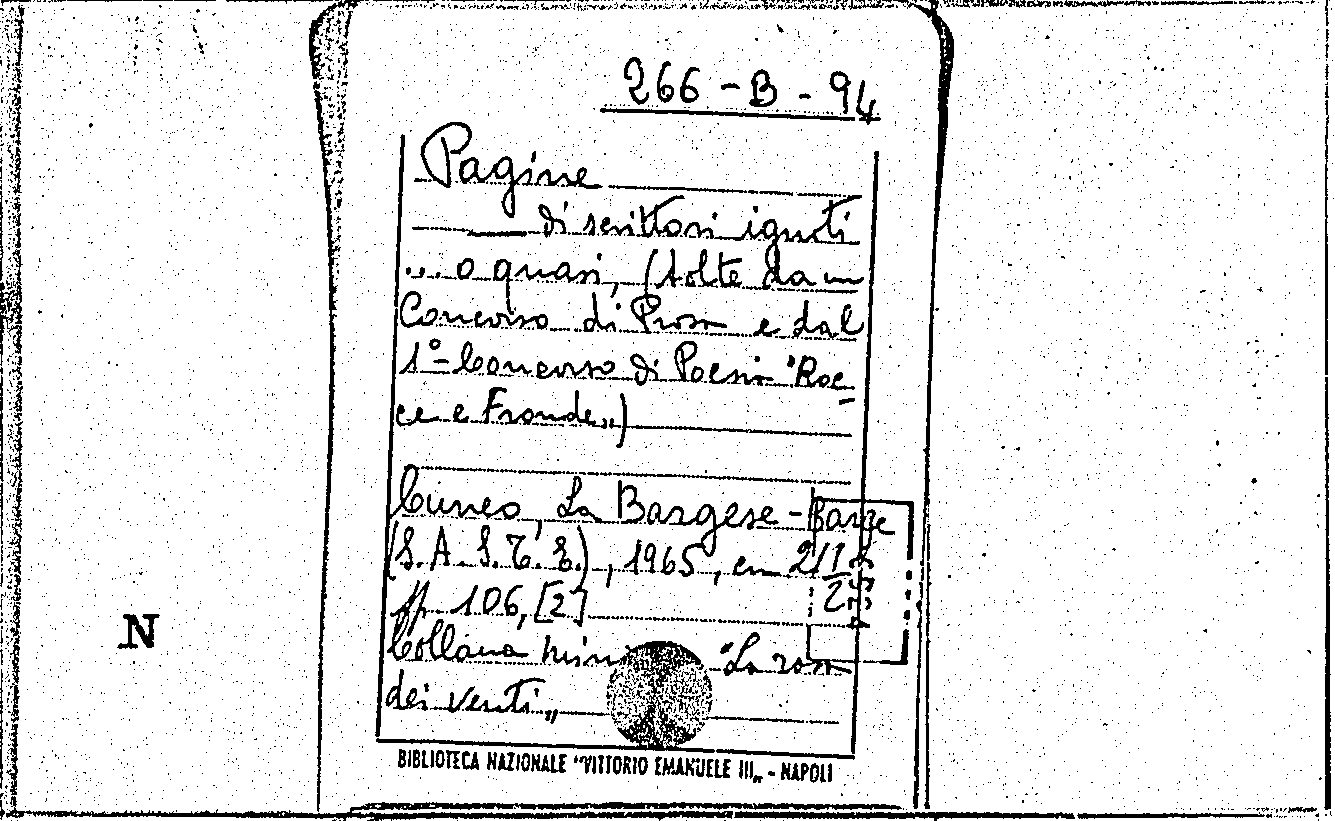 266-B-94
Pagine
di scrittori ignoti
... o quasi, (tolte da un
Concorso di Prosa e dal
1º Concorso di Poesia "Roc
ce e Fronde„)
Cuneo, La Bargese - Barge
(S.A.S.T.E.), 1965, in
pp 106, [2]
N
Collana "La rosa
dei venti„
BIBLIOTECA NAZIONALE "VITTORIO EMANUELE III„ - NAPOLI